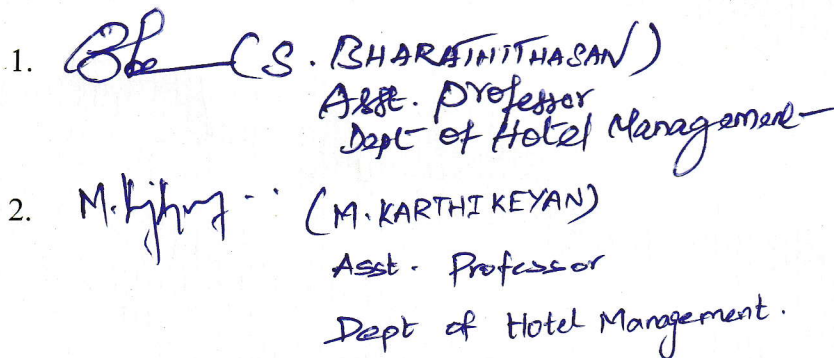 1. (S. BHARATHITHASAN)
Asst. Professor
Dept of Hotel Management
2. (M. KARTHIKEYAN)
Asst. Professor
Dept of Hotel Management.